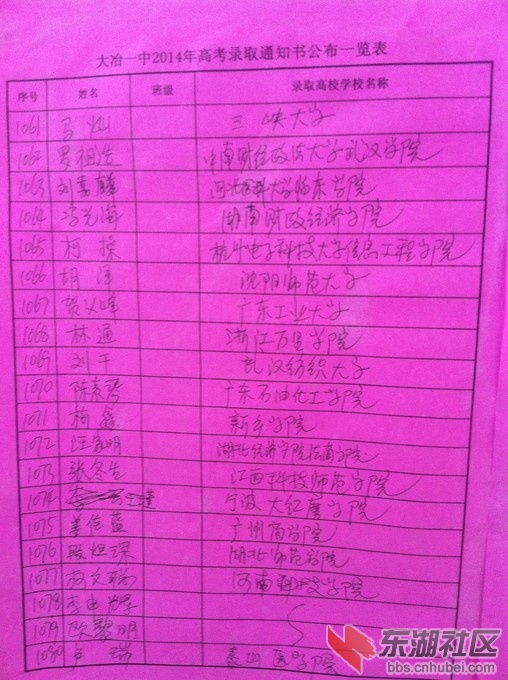 大冶一中2014年高考录取通知书公布一览表
序号 姓名 班级 录取高校学校名称
1061 马灿 三峡大学
1062 罗祖浩 中南财经政法大学武汉学院
1063 刘嘉麟 河北医科大学临床学院
1064 冯光海 湖南财政经济学院
1065 柯操 杭州电子科技大学信息工程学院
1066 胡泽 沈阳师范大学
1067 贺义峰 广东工业大学
1068 林通 浙江万里学院
1069 刘干 武汉纺织大学
1070 陈素琴 广东石油化工学院
1071 梅鑫 新乡学院
1072 汪家明 湖北经济学院法商学院
1073 张冬生 江西科技师范学院
1074 宁波大红鹰学院
1075 姜佳蓝 广州商学院
1076 湖北师范学院
1077 河南科技学院
1078 李由
1079 欧黎明
1080 瑞 泰山医学院
东湖社区
bbs.cnhubei.com